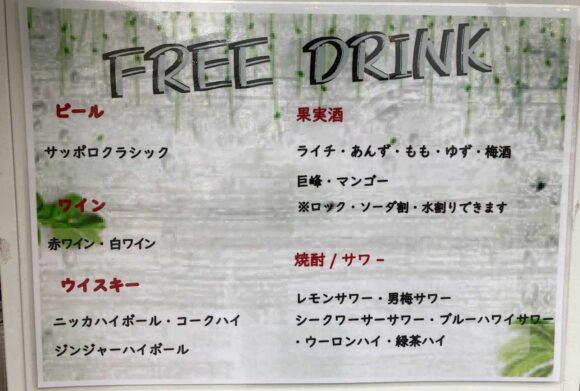 FREE DRINK
ビール
サッポロクラシック
ワイン
赤ワイン・白ワイン
ウイスキー
ニッカハイボール・コークハイ
ジンジャーハイボール
果実酒
ライチ・あんず・もも・ゆず・梅酒
巨峰・マンゴー
※ロック・ソーダ割・水割りできます
焼酎 / サワー
レモンサワー・男梅サワー
シークワーサーサワー・ブルーハワイサワー
・ウーロンハイ・緑茶ハイ